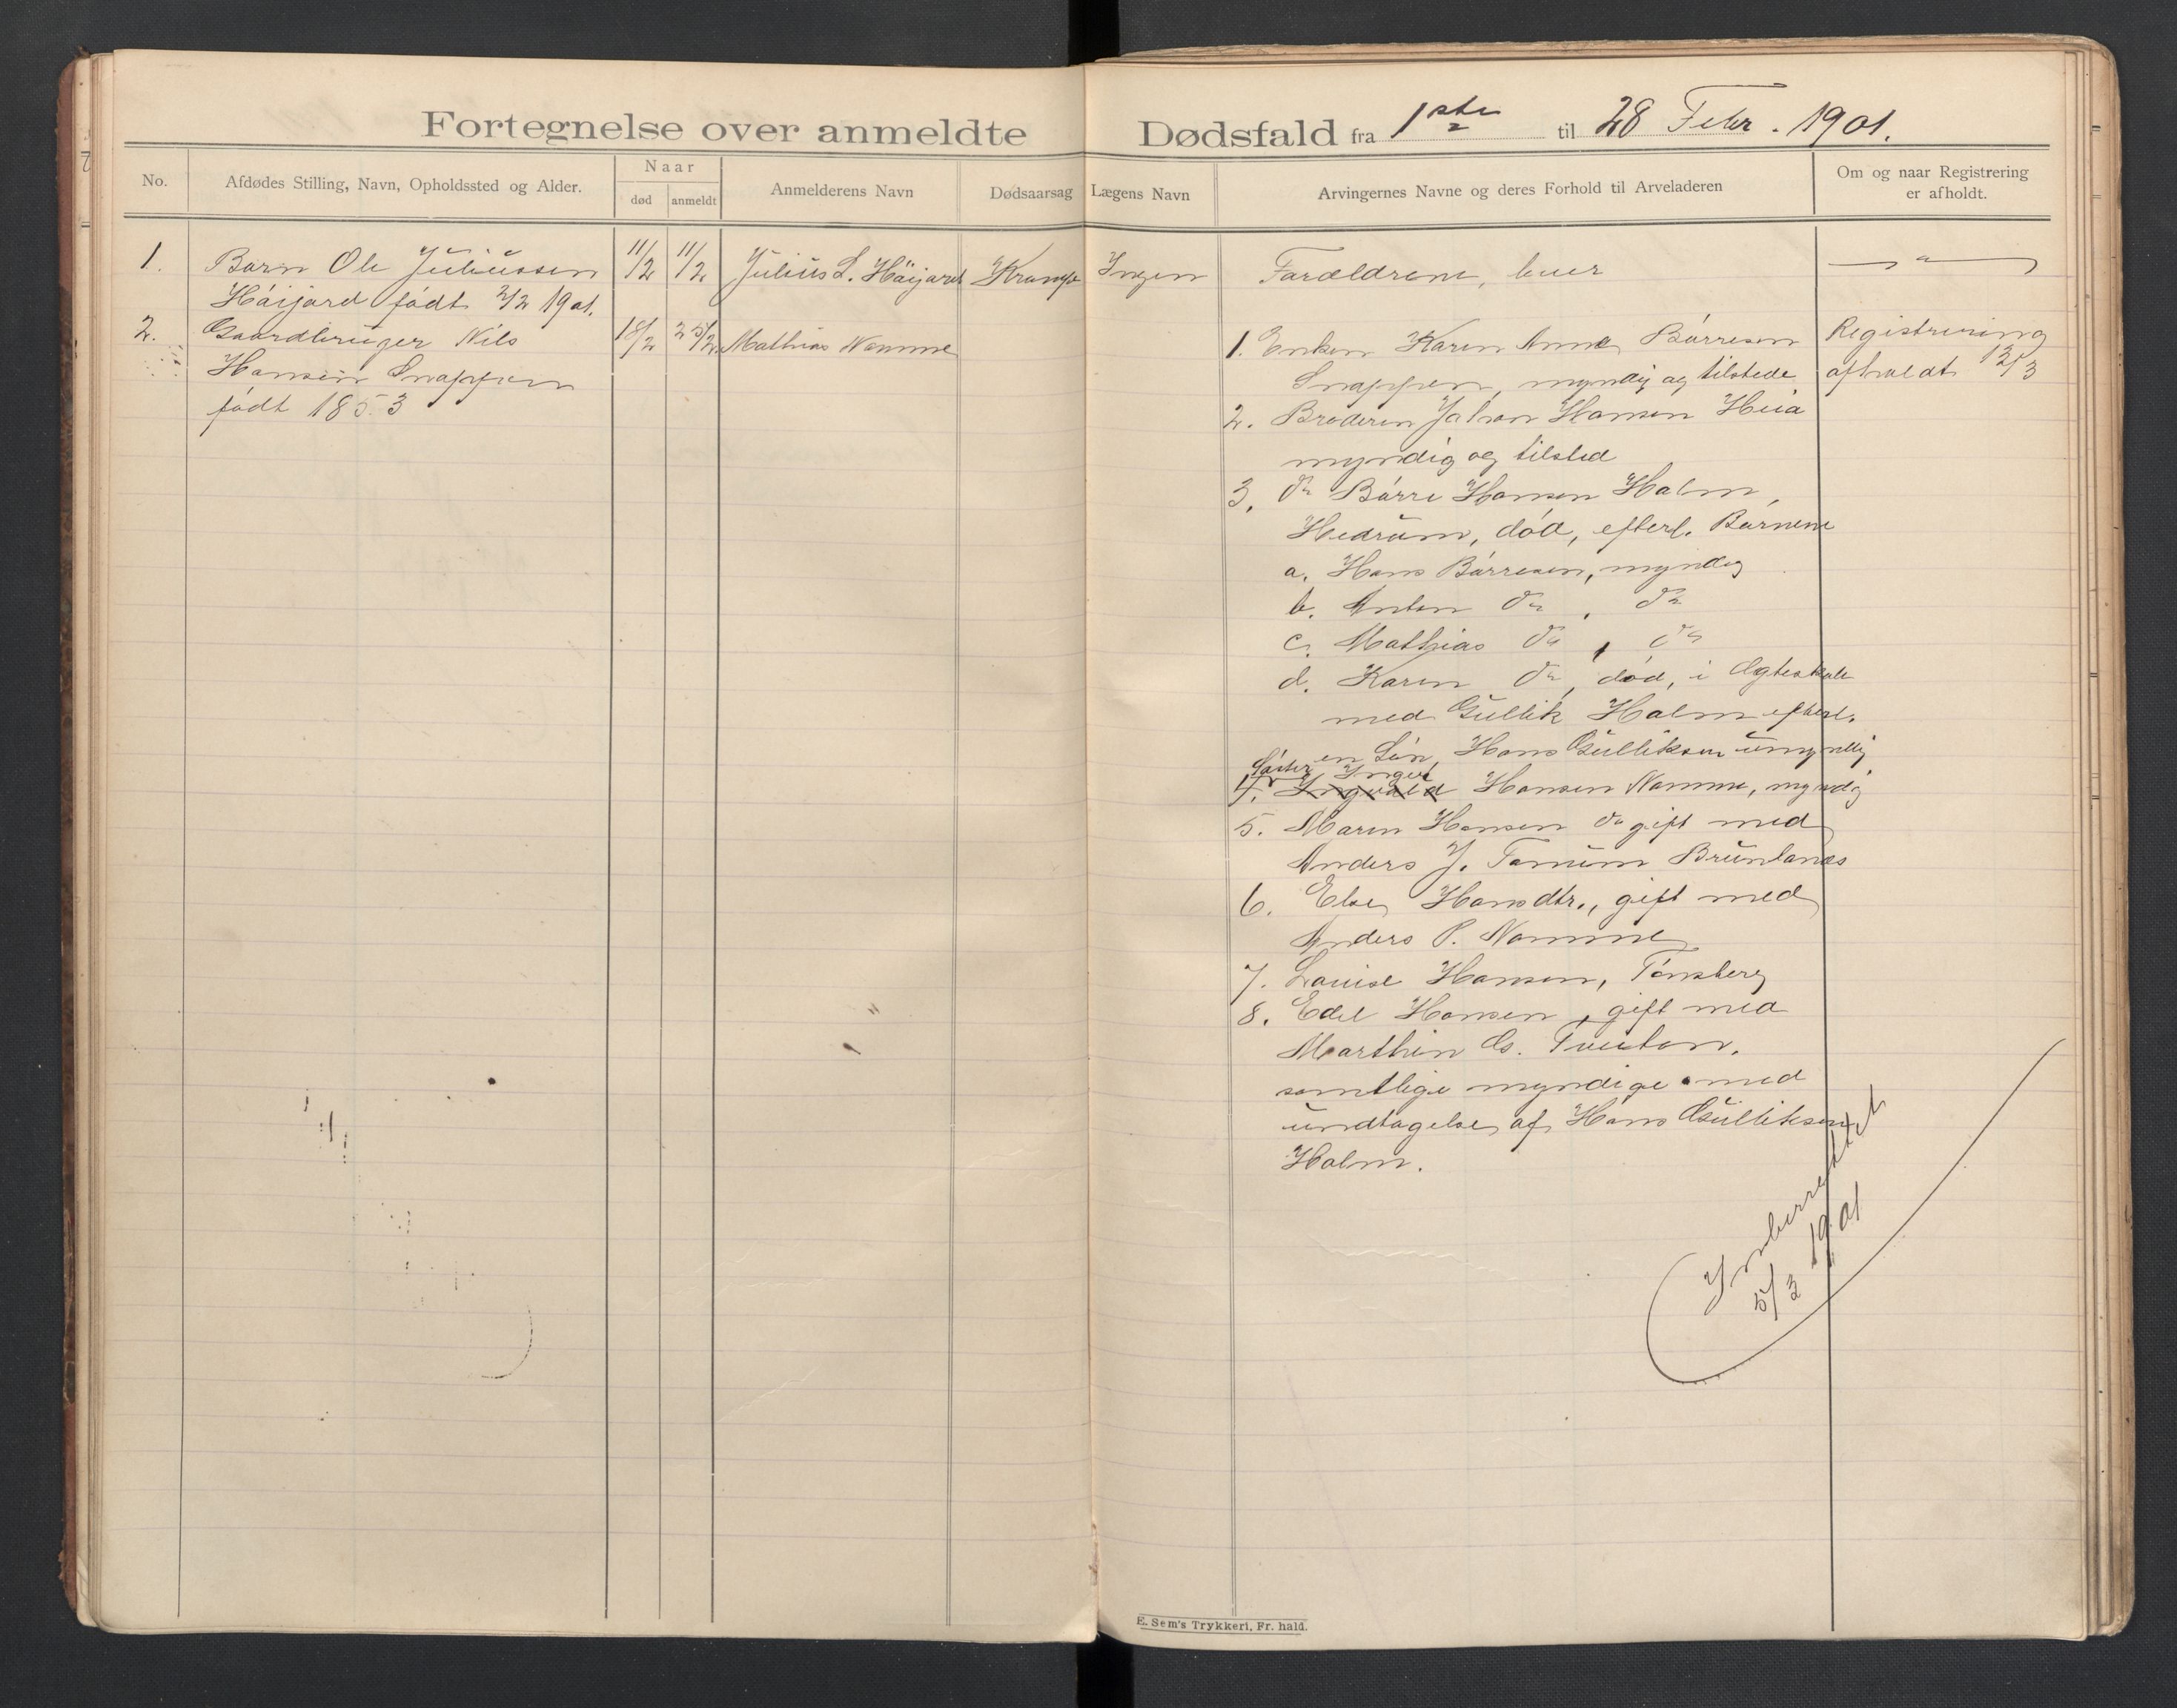 Fortegnelse over anmeldte Dødsfald fra 1ste til 28 Febr. 1901.
No.
Afdødes Stilling, Navn, Opholdssted og Alder.
Naar
død
anmeldt
Anmelderens Navn
Dødsaarsag
Lægens Navn
Arvingernes Navne og deres Forhold til Arveladeren
Om og naar Registrering
er afholdt.
1. Barn Ole Juliussen 11/2 11/2 Julius L. Häijord Krampe Ingen Forældrene, lever — " —
Häijord født 2/2 1901.
2. Gaardbruger Nils 18/2 25/2 Mathias Namme
Hansen Snappen
født 1853
1. Enken Karen Anne Børresen
Snappen, myndig og tilstede
Registrering
afholdt 12/3
2. Broderen Johan Hansen Heia
myndig og tilsted
3. do Børre Hansen Holm,
Hedrum, død, efterl. Børnene
a. Hans Børresen, myndig
b. Anton do, do
c. Mathias do, do
d. Karen do, død, i Ægteskab
med Gullik Holm efterl.
en Søn, Hans Gulliksen umyndig
Søster Inger
4. Ingvald Hansen Namme, myndig
5. Maren Hansen do gift med
Anders J. Tanum Brunlanæs
6. Else Hansdtr., gift med
Anders P. Namme
7. Louise Hansen, Tønsberg
8. Edel Hansen, gift med
Marthin O. Tveitan.
samtlige myndige med
undtagelse af Hans Gulliksen
Holm.
Inberrettet
5/3 1901
E. Sem's Trykkeri, Fr. hald.